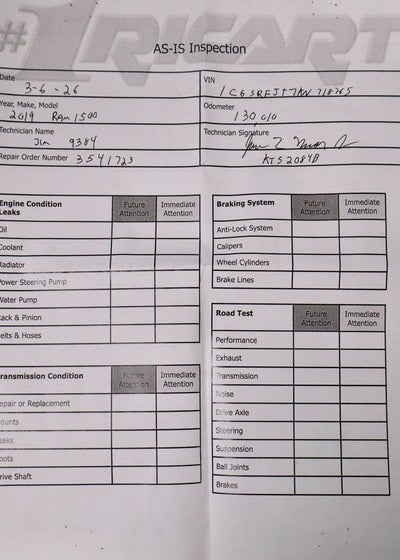 #1 RICART
AS-IS Inspection
Date 3-6-26
VIN 1C6SRFJT7KN718765
Year, Make, Model 2019 RAM 1500
Odometer 130 010
Technician Name Jim 9384
Technician Signature
Repair Order Number 3541723
ATS2084B
Engine Condition Leaks Future Attention Immediate Attention
Oil
Coolant
Radiator
Power Steering Pump
Water Pump
Rack & Pinion
Belts & Hoses
Transmission Condition Future Attention Immediate Attention
epair or Replacement
ounts
eaks
oots
rive Shaft
Braking System Future Attention Immediate Attention
Anti-Lock System
Calipers
Wheel Cylinders
Brake Lines
Road Test Future Attention Immediate Attention
Performance
Exhaust
Transmission
Noise
Drive Axle
Steering
Suspension
Ball Joints
Brakes